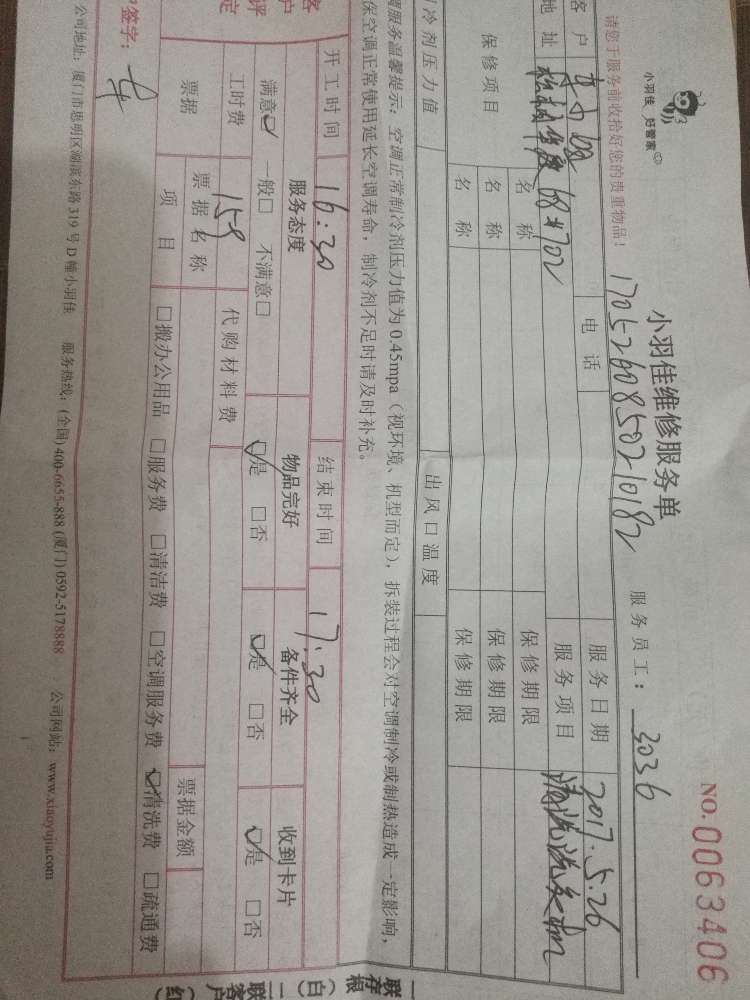 小羽佳 好管家
小羽佳维修服务单
NO. 0063406
请您于服务前收拾好您的贵重物品！
170526085021 0182
服务员工： 3036
客户
电话
服务日期 2017.5.26
地址 68#702
服务项目 清洗洗衣机
保修项目
名称 保修期限
名称 保修期限
名称 保修期限
冷剂压力值
出风口温度
服务温馨提示：空调正常制冷剂压力值为0.45mpa（视环境、机型而定），拆装过程会对空调制冷或制热造成一定影响，
保空调正常使用延长空调寿命，制冷剂不足时请及时补充。
开工时间 16:30 结束时间 17:30
客
户
评
定
服务态度 物品完好 备件齐全 收到卡片
满意☑ 一般□ 不满意□ ☑是 □否 ☑是 □否 ☑是 □否
工时费 159 代购材料费
票据 票据名称 票据金额
项目 □搬办公用品 □服务费 □清洁费 □空调服务费 ☑清洗费 □疏通费
签字：
公司地址：厦门市思明区湖滨东路319号D幢小羽佳 服务热线：(全国) 400-6655-888 (厦门) 0592-5178888 公司网站：www.xiaoyujia.com
一联存根（白） 二联客户（红）